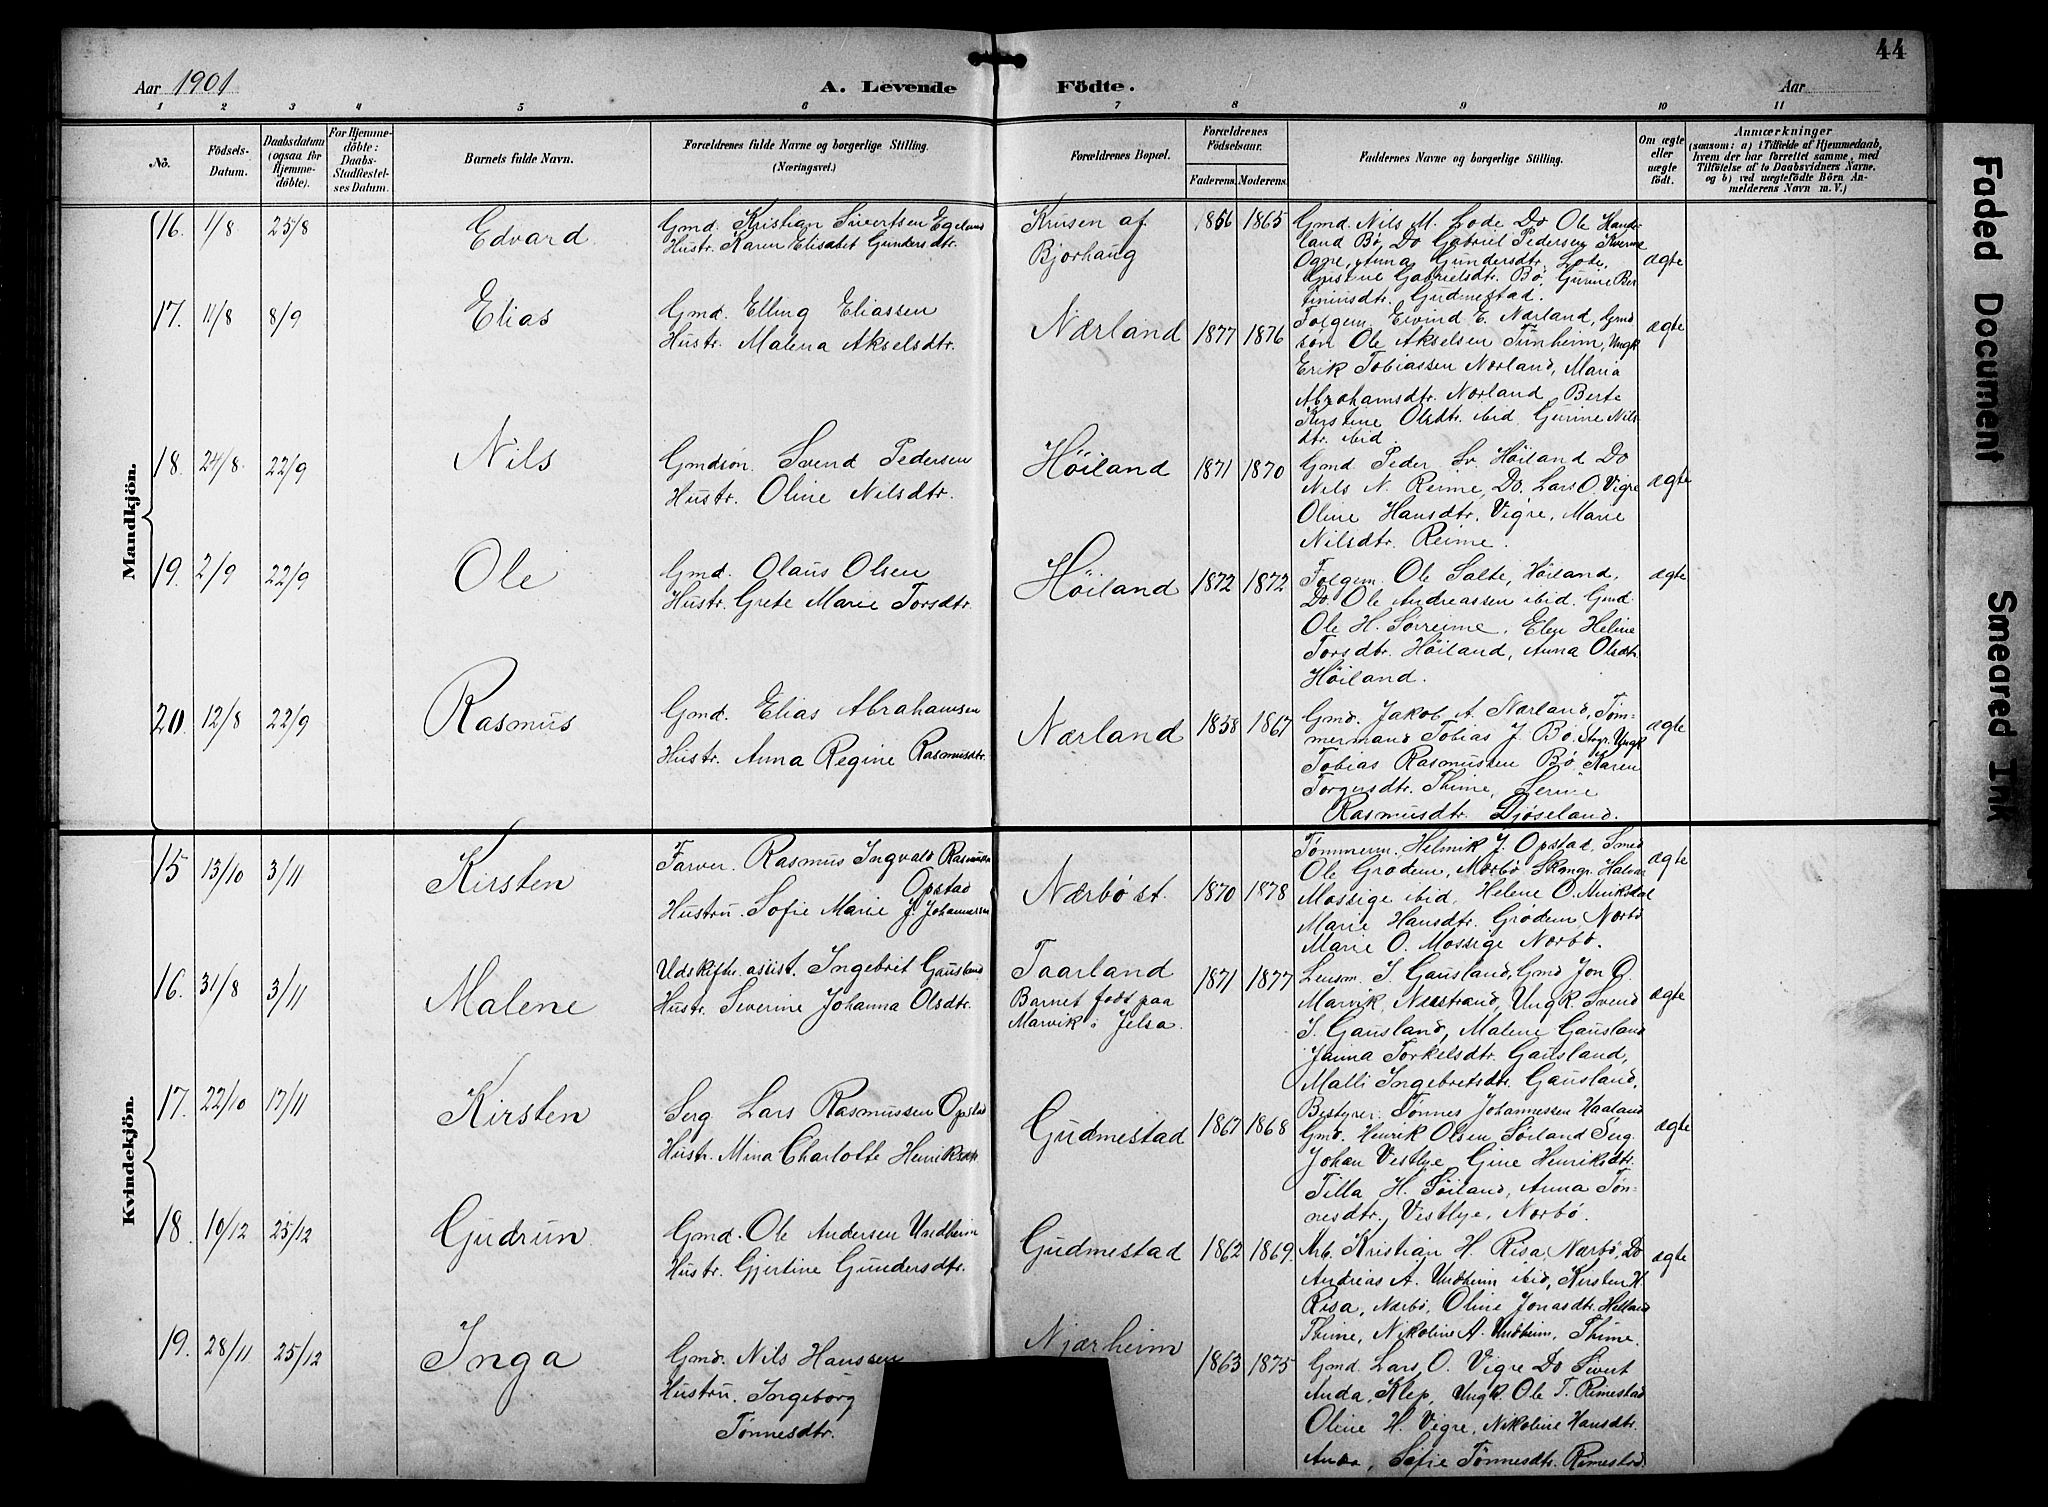 44
Aar 1901
A. Levende Födte.
Aar
1 2 3 4 5 6 7 8 9 10 11
No.
Födsels-Datum.
Daabsdatum (ogsaa for Hjemme-döbte).
For Hjemme-döbte: Daabs-Stadfæstel-ses Datum.
Barnets fulde Navn.
Forældrenes fulde Navne og borgerlige Stilling.
(Næringsvei.)
Forældrenes Bopæl.
Forældrenes Födselsaar.
Faderens. Moderens.
Faddernes Navne og borgerlige Stilling.
Om ægte eller uægte födt.
Anmærkninger
(saasom: a) i Tilfælde af Hjemmedaab,
hvem der har forrettet samme, med
Tilföielse af to Daabsvidners Navne.
og b) ved uægtefödte Börn An-
melderens Navn m. V.)
Mandkjön.
16. 1/8 25/8 Edvard
Gmd. Kristian Sivertsen Egeland
Hustr. Karen Elisabet Gundersdtr.
Krusen af
Bjorhaug
1856 1865
Gmd. Nils M. Lode Do Ole Haude-
land Bø, Do Gabriel Pedersen Kverme
Ogne, Anna Gundersdtr. Lode,
Gabrielsdtr. Bø, Gurine Ber
Gudmestad.
ægte
17. 11/8 8/9 Elias
Gmd. Elling Eliassen
Hustr. Malena Akselsdtr.
Nærland
1877 1876
Folgem. Eivind E. Nærland, Gmd
søn Ole Akselsen Tunheim, Ungk
Erik Tobiassen Nærland, Maria
Abrahamsdtr. Nærland, Berte
Kirstine Olsdtr. ibid Gurine Nils-
dtr. ibid.
ægte
18. 24/8. 22/9 Nils
Gmdsøn. Svend Pedersen
Hustr. Oline Nilsdtr.
Høiland
1871 1870
Gmd. Peder Sv. Høiland Do
Nils N. Reime, Do. Lars O. Vigre
Oline Hansdtr. Vigre, Marie
Nilsdtr. Reime.
ægte
19. 2/9 22/9 Ole
Gmd. Olaus Olsen
Hustr. Grete Marie Torsdtr.
Høiland
1872 1872
Folgem. Ole Salte, Høiland,
Do. Ole Andreassen ibid. Gmd.
Ole H. Sørreime, Elen Heline
Torsdtr. Høiland, Anna Olsdtr.
Høiland.
ægte
20. 12/8 22/9 Rasmus
Gmd. Elias Abrahamsen
Hustr. Anna Regine Rasmusdtr.
Nærland
1858 1867
Gmd. Jakob A. Nærland, Tøm-
mermand Tobias J. Bø, Ungk
Tobias Rasmussen Bø, Karen
Torgersdtr. Thime, Serine
Rasmusdtr. Djøseland.
ægte
Kvindekjön.
15 13/10 3/11 Kirsten
Farver. Rasmus Ingvald Rasmussen
Opstad
Hustru. Sofie Marie J. Johannessen
Nærbø st.
1870 1878
Tømmerm. Helmik J. Opstad, Smed
Ole Grødem, Nærbø
Mossige ibid, Helene O.
Marie Hansdtr. Grødem, Nærbø
Marie O. Mossige Nærbø.
ægte
16. 31/8 3/11 Malene
Udskiftn. assist. Ingebret Gausland
Hustr. Severine Johanna Olsdtr.
Taarland
Barnet født paa
Marvik i Jelsa.
1871 1877
Lensm. S. Gausland, Gmd Jon O.
Marvik, Nærstrand, Ungk. Svend
S. Gausland, Malene Gausland
Janna Torkelsdtr. Gausland,
Malli Ingebretsdtr. Gausland,
ægte
17. 22/10 17/11 Kirsten
Serg Lars Rasmussen Opstad
Hustr. Mina Charlotte Henriksdtr
Gudmestad
1867 1868
Bestyrer. Tønnes Johannessen Haaland
Gmd. Henrik Olsen Søiland Serg.
Johan Vestlye Gine Henriksdtr.
Tilla H. Søiland, Anna Tøn-
nesdtr. Vestlye, Nærbø.
ægte
18. 10/12 25/12 Gudrun
Gmd. Ole Andersen Undheim
Hustr. Gjertine Gundersdtr.
Gudmestad
1862 1869.
Arb. Kristian H. Risa, Nærbø, Do
Andreas A. Undheim ibid, Kirsten H.
Risa, Nærbø, Oline Jonasdtr. Helland
Thime, Nikoline A. Undheim, Thime.
ægte
19. 28/11 25/12 Inga
Gmd. Nils Hanssen
Hustru. Ingeborg
Tønnesdtr.
Njærheim
1863 1875
Gmd. Lars O. Vigre Do Sivert
Anda, Klep, Ungk. Ole T. Rimestad
Oline H. Vigre, Nikoline Hansdtr.
Anda, Sofie Tønnesdtr. Rimestad.
Faded Document
Smeared Ink